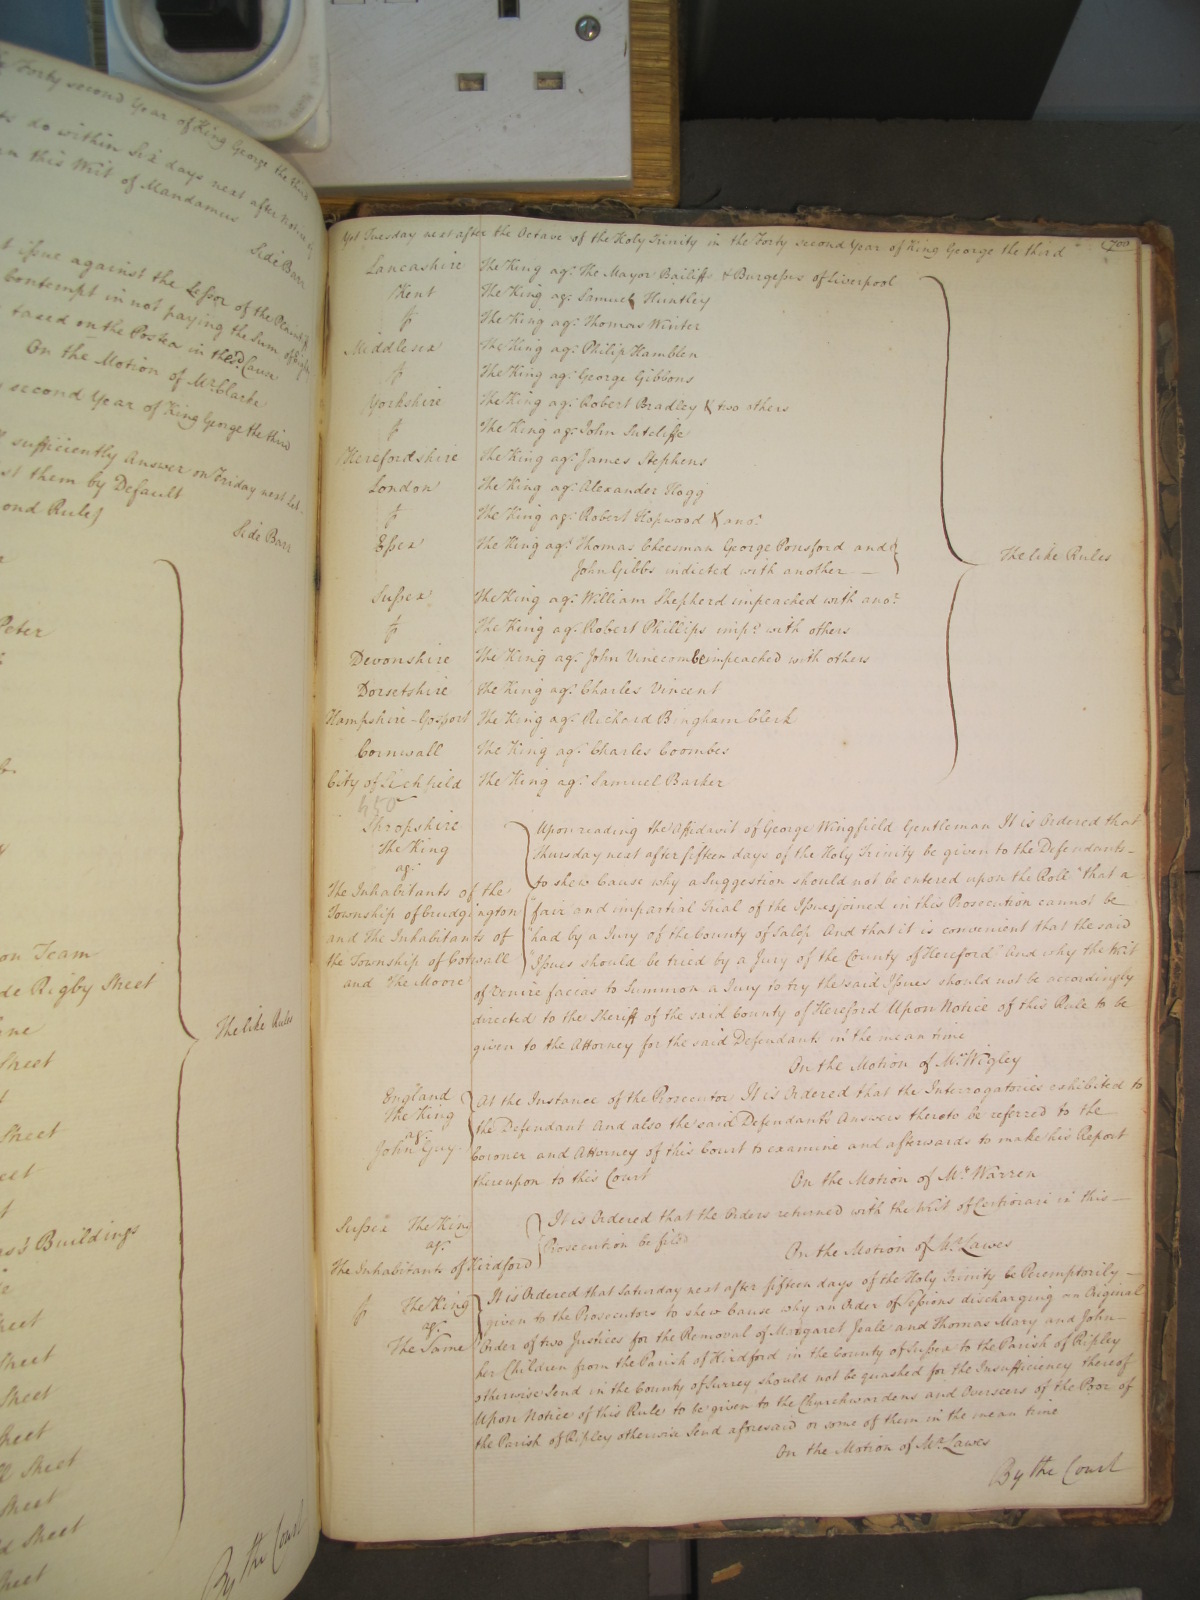 Forty second Year of King George the third
do within Six days next after notice
this Writ of Mandamus
Side Barr
issue against the Lessor of the Plaintiff
Contempt in not paying the Sum of
taxed on the Postea in the sd. Cause
On the Motion of Mr. Clarke
second Year of King George the third
sufficiently Answer on Friday next
them by Default
ond Rule)
Side Barr
Peter
on Team
de Rigby Street
The like Rules
Street
Street
Buildings
Street
Street
Street
Street
Street
By the Court
Yet Tuesday next after the Octave of the Holy Trinity in the Forty second Year of King George the third
Lancashire The King agt. The Mayor Bailiffs & Burgesses of Liverpool
Kent The King agt. Samuel Huntley
The King agt. Thomas Winter
Middlesex The King agt. Philip Hamblen
The King agt. George Gibbons
Yorkshire The King agt. Robert Bradley & two others
The King agt. John Sutcliffe
Herefordshire The King agt. James Stephens
London The King agt. Alexander Hogg
The King agt. Robert Hopwood & anor.
Essex The King agt. Thomas Cheesman George Ponsford and
John Gibbs indicted with another
The like Rules
Sussex The King agt. William Shepherd impeached with anor.
The King agt. Robert Phillips impd. with others
Devonshire The King agt. John Vinecombe impeached with others
Dorsetshire The King agt. Charles Vincent
Hampshire - Gosport The King agt. Richard Bingham Clerk
Cornwall The King agt. Charles Coombes
City of Lichfield The King agt. Samuel Barker
450
Shropshire
The King
agt.
The Inhabitants of the
Township of Crudgington
and The Inhabitants of
the Township of Cotwall
and The Moore
Upon reading the Affidavit of George Wingfield Gentleman It is Ordered that
Thursday next after fifteen days of the Holy Trinity be given to the Defendants
to shew Cause why a Suggestion should not be entered upon the Roll "that a
"fair and impartial Trial of the Issues joined in this Prosecution cannot be
"had by a Jury of the County of Salop And that it is convenient that the said
Issues should be tried by a Jury of the County of Hereford" And why the Writ
of Venire facias to Summon a Jury to try the said Issues should not be accordingly
directed to the Sheriff of the said County of Hereford Upon Notice of this Rule to be
given to the Attorney for the said Defendants in the mean time
On the Motion of Mr. Wigley
England
The King
agt.
John Guy
At the Instance of the Prosecutor It is Ordered that the Interrogatories exhibited to
the Defendant And also the said Defendants Answers thereto be referred to the
Coroner and Attorney of this Court to examine and afterwards to make his Report
thereupon to this Court
On the Motion of Mr. Warren
Sussex The King
agt.
The Inhabitants of Kirdford
It is Ordered that the Orders returned with the Writ of Certiorari in this
Prosecution be filed
On the Motion of Mr. Lawes
The King
agt.
The Same
It is Ordered that Saturday next after fifteen days of the Holy Trinity be Peremptorily
given to the Prosecutors to shew Cause why an Order of Sessions discharging an Original
Order of two Justices for the Removal of Margaret Jeale and Thomas Mary and John
her Children from the Parish of Kirdford in the County of Sussex to the Parish of Ripley
otherwise Send in the County of Surrey should not be quashed for the Insufficiency thereof
Upon Notice of this Rule to be given to the Churchwardens and Overseers of the Poor of
the Parish of Ripley otherwise Send aforesaid or some of them in the mean time
On the Motion of Mr. Lawes
By the Court